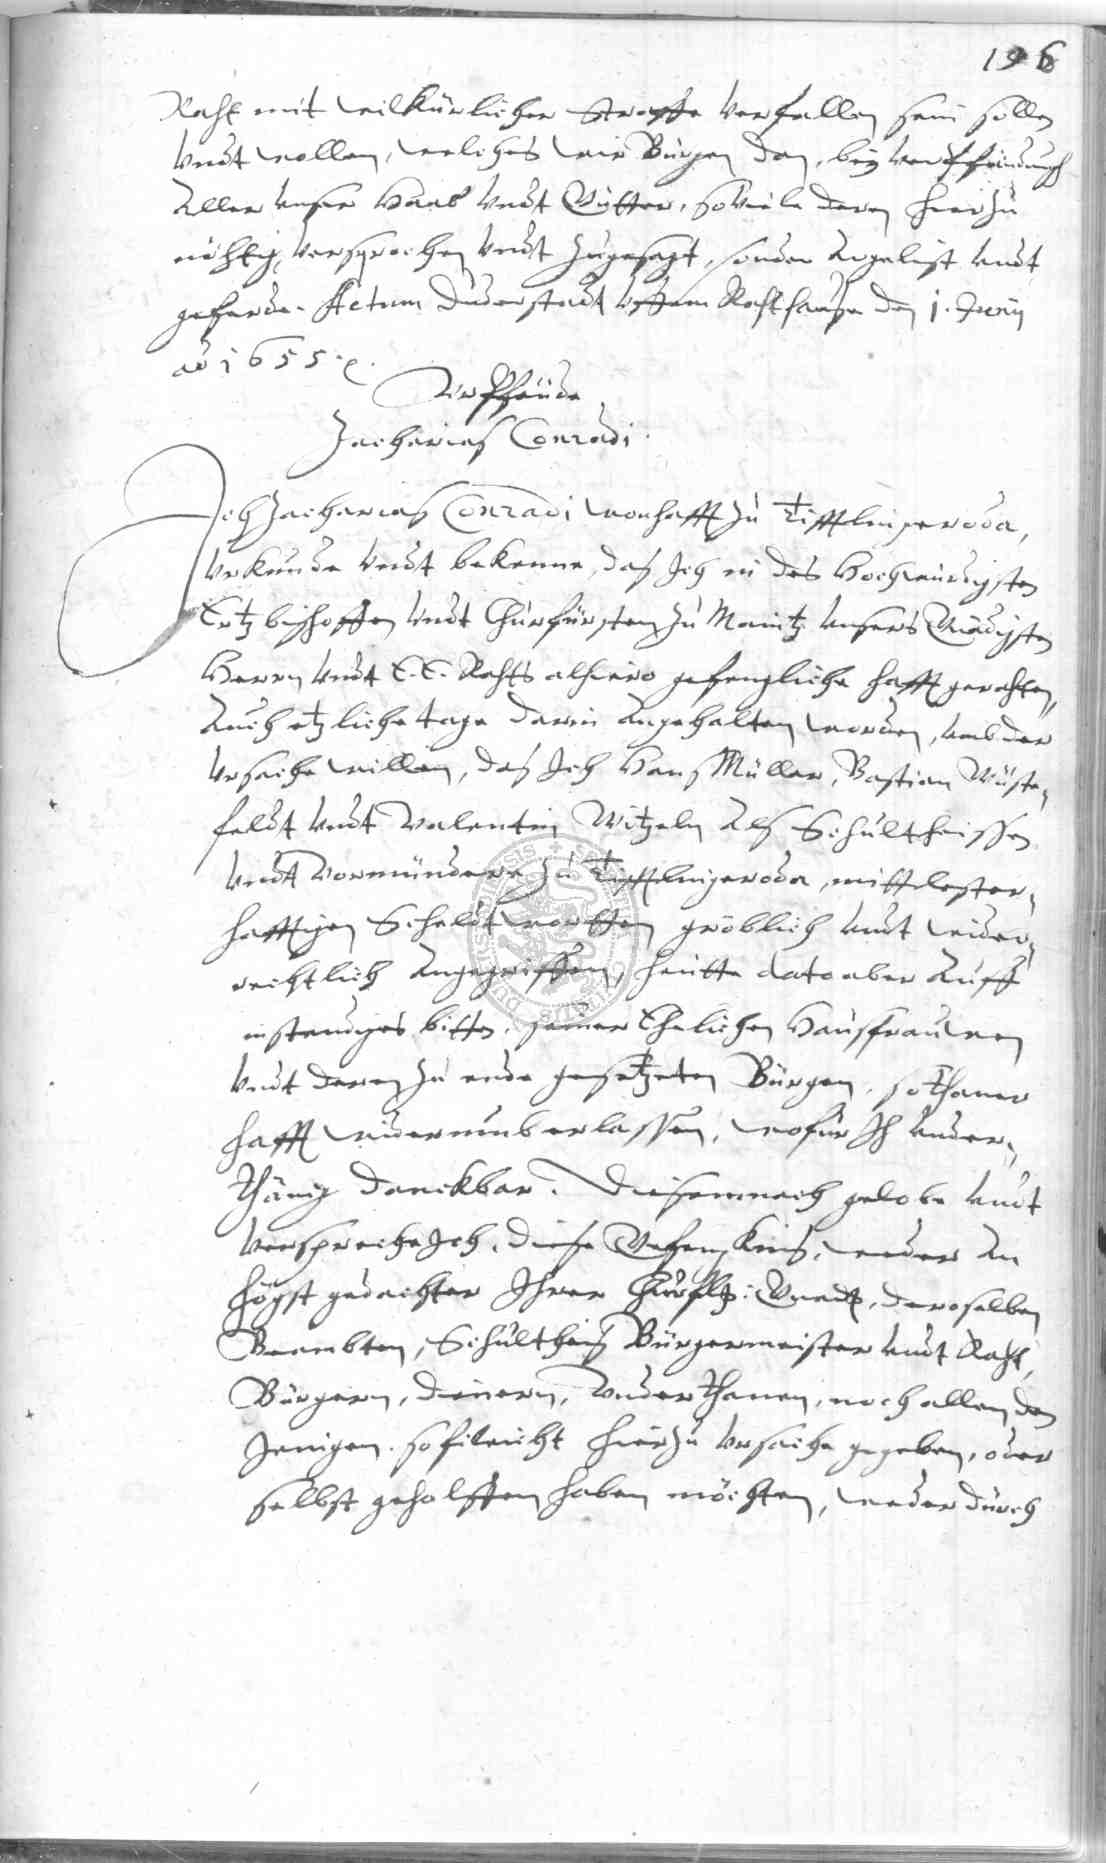 196
Raht mit wilkürlicher Straffe verfallen sein sollen
vndt wollen, welches wir Bürgen dan, bey verpfändung
aller vnser Haab vndt Gütter, so viele deren hierzu
nöhtig, versprochen vndt zugesagt, sonder argelist vndt
geferde. Actum Duderstadt vffem Rahthause den 1. Junij
ao 1655.
Urpheide
Zacharias Conradi.
Ich Zacharias Conradi wonhafft zu Tifftlingeroda,
Vrkunde vndt bekenne, das Ich in des Hochwürdigsten
Ertzbischoffen vndt Churfürsten zu Maintz vnsers Gnädigsten
Herrn vndt E. E. Rahts alhiero gefengliche hafft gerahten,
auch etzliche tage darin angehalten worden, vmb der
Vrsache willen, das Ich Hans Müller, Bastian Wüste-
feldt vndt Valentin Witzeln als Schultheissen
vndt Vormündere zu Tifftlingeroda, mitt lester-
hafftigen Scheldtwortten gröblich vndt wider-
rechtlich angegriffen, heutte dato aber auff
instendiges bitten, seiner Ehelichen Hausfrauwen
vndt deren zu ende gesetzeten Bürgen, sothaner
hafft widerumb erlassen, wofür Ich vnder-
thänig danckbar. Diesemnach gelobe vndt
verspreche Ich, diese Gefengknis, weder an
högst gedachter Ihrer Churfltz: Gnadt, deroselben
Beambten, Schultheis Bürgermeister vndt Raht,
Bürgern, dienern, Vnderthanen, noch allen den
Jenigen so fileicht hierzu Vrsache gegeben, oder
selbst geholffen haben möchten, weder durch